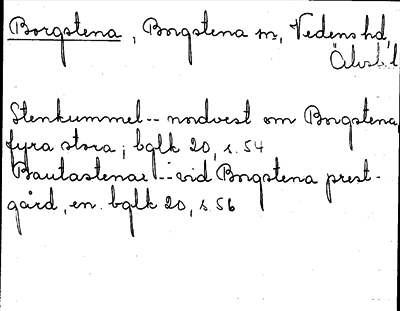 Borgstena, Borgstena sn, Vedens hd,
Älvsb. l
Stenkummel -- nordvest om Borgstena,
fyra stora; bglk 20, s. 54
Bautastenar -- vid Borgstena prest-
gård, en. bglk 20, s. 56